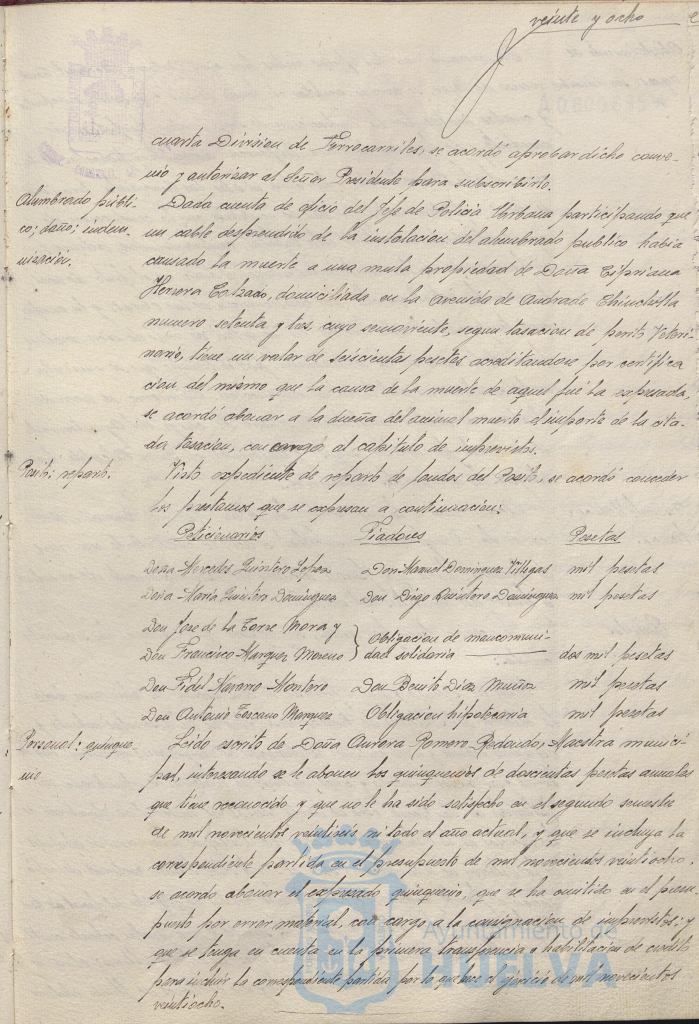 veinte y ocho
cuarta Division de Ferrocarriles, se acordó aprobar dicho conve-
nio y autorizar al Señor Presidente para subscribirlo.
Alumbrado públi-
co; daño; indem-
nización.
Dada cuenta de oficio del Jefe de Policia Urbana participando que
un cable desprendido de la instalacion del alumbrado publico habia
causado la muerte a una mula propiedad de Doña Cipriana
Herrera Calzado, domiciliada en la Avenida de Andrade Chinchilla
numero setenta y tres, cuyo semoviente, segun tasacion de perito Veteri-
nario, tiene un valor de seiscientas pesetas acreditandose por certifica
cion del mismo que la causa de la muerte de aquel fué la expresada,
se acordó abonar a la dueña del animal muerto el importe de la cita-
da tasacion, con cargo al capitulo de imprevistos.
Posito: reparto.
Visto expediente de reparto de fondos del Posito, se acordó conceder
los prestamos que se expresan a continuacion:
Peticionarios Fiadores Pesetas
Doña Mercedes Quintero Lopez Don Manuel Dominguez Villegas mil pesetas
Doña Maria Quintero Dominguez Don Diego Quintero Dominguez mil pesetas
Don Jose de la Torre Mora y
Don Francisco Marquez Moreno } Obligacion de mancomuni-
dad solidaria dos mil pesetas
Don Fidel Navarro Montero Don Benito Diaz Muñoz mil pesetas
Don Antonio Toscano Marquez Obligacion hipotecaria mil pesetas
Personal: quinque-
nio
Leido escrito de Doña Aurora Romero Redondo, Maestra munici-
pal, interesando se le abonen los quinquenios de doscientas pesetas anuales
que tiene reconocido y que no le ha sido satisfecho en el segundo semestre
de mil novecientos veintiseis ni todo el año actual, y que se incluya la
correspondiente partida en el presupuesto de mil novecientos veintiocho,
se acordo abonar el expresado quinquenio, que se ha omitido en el presu-
puesto por error material, con cargo a la consignacion de imprevistos; y
que se tenga en cuenta en la primera transferencia o habilitacion de credito
para incluir la correspondiente partida por lo que hace al ejercicio de mil novecientos
veintiocho.
Ayuntamiento de
HUELVA